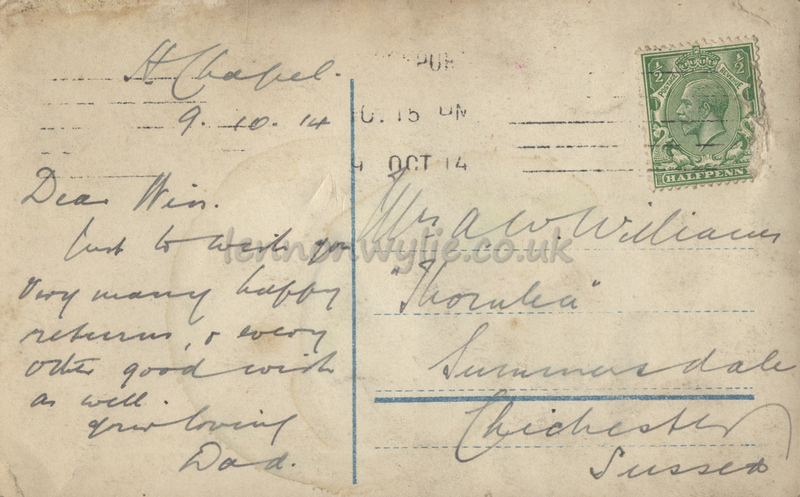 H Chapel.
9. 10. 14
Dear Win.
Just to wish you
very many happy
returns, & every
other good wish
as well.
your loving
Dad.
10.15 PM
9 OCT 14
POSTAGE REVENUE
½ ½
HALFPENNY
Mrs A. W. Williams
"Thornlea"
Summersdale
Chichester
Sussex
lennonwylie.co.uk